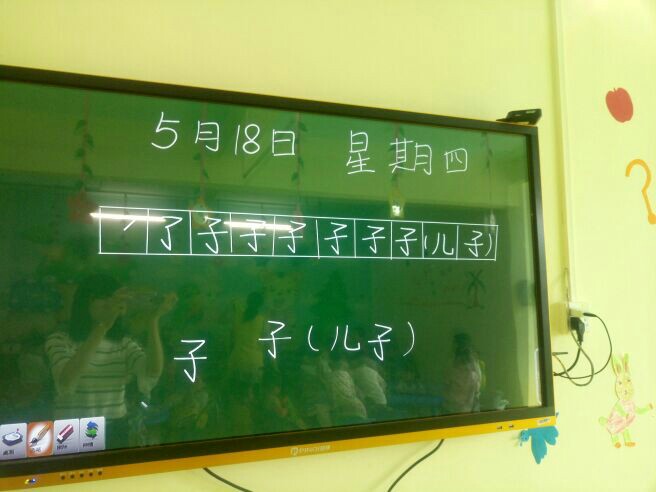 5月18日 星期四
㇇了子子子子子子(儿子)
子 子(儿子)